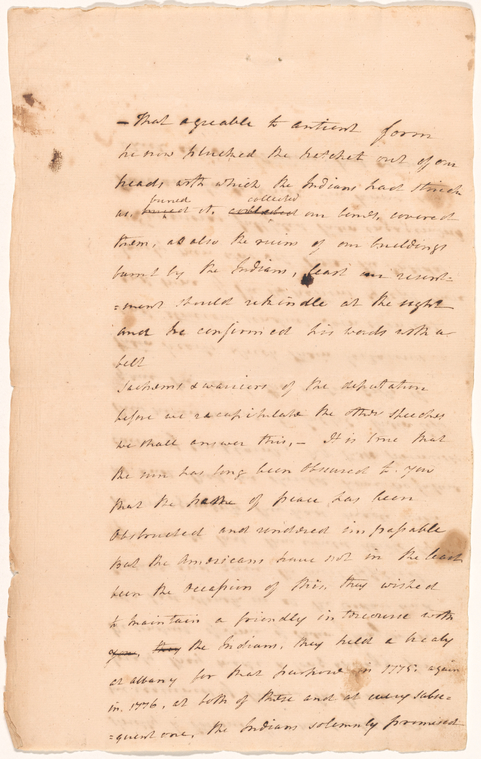 – That agreable to antient form
he now plucked the hatchet out of our
heads with which the Indians had struck
us,
buried collected
it, our bones, covered
them, as also the ruins of our buildings
burnt by the Indians, least our resent=
=ment should rekindle at the sight
and he confirmed his words with a
belt
Sachems & warriors of the deputation
before we recapitulate the other speeches
we shall answer this, – It is true that
the sun has long been obscured to you
that the path of peace has been
Obstructed and rendered impassable
but the Americans have not in the least
been the occasion of this, they wished
to maintain a friendly intercourse with
you, they the Indians, they held a treaty
at albany for that purpose in 1775. again
in 1776, at both of these and at every subse=
=quent one, the Indians solemnly promised